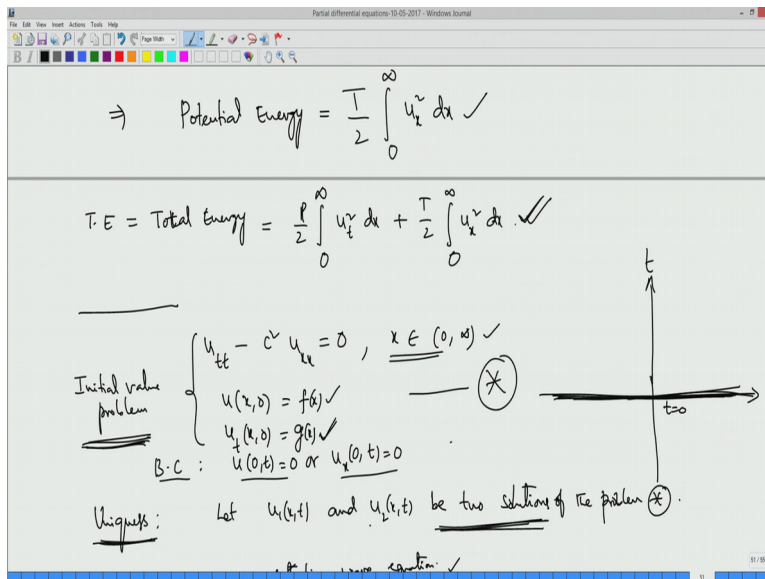 Partial differential equations-10-05-2017 - Windows Journal
File Edit View Insert Actions Tools Help
Page Width
B I
⇒ Potential Energy = T/2 ∫₀^∞ u_x² dx ✓
T.E = Total Energy = ρ/2 ∫₀^∞ u_t² dx + T/2 ∫₀^∞ u_x² dx. ✓
t
u_tt - c² u_xx = 0, x ∈ (0, ∞) ✓
Initial value problem
u(x,0) = f(x) ✓
(*)
t=0
u_t(x,0) = g(x) ✓
B.C : u(0,t)=0 or u_x(0,t)=0
Uniqness : Let u₁(x,t) and u₂(x,t) be two solutions of the problem (*).
equation. ✓
51/55
51